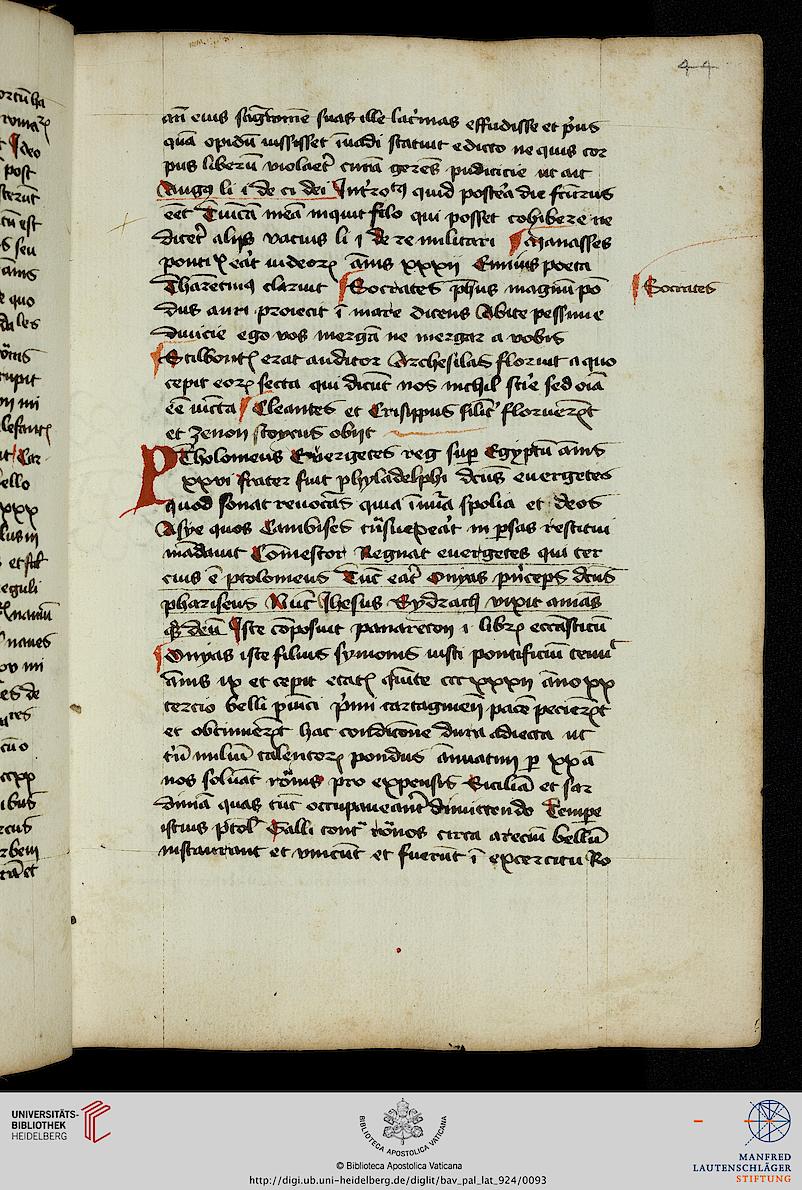 44
an̄ eius sāgⁱomē suas ille lac'mas effudisse et p'us
quā opidū iussisset īuadi statuit edicto ne quis cor
pus liberū violaet' curā gerēs pudicicie ut ait
Augꝰ li i de ci dei Int'rotꝰ quid postea die fcūrus
eēt Tuīcā meā inquit filo qui posset cohibere ne
dicet' alijs vacuis li i de re militari Manasses
pontix eāt iudeoꝝ ānis xxxij Ennius poeta
Tharentinꝰ claruit Socrates ph̄us magnū pō
dus auri proiecit ī mare dicens Abite pessime
diuicie ego vos mergā ne mergar a vobis
Socrates
erat auditor Archesilas floruit a quo
cepit eoꝝ secta qui dicūt nos nichil sci'e sed oīa
eē īicta Cleantes et Crisippus silit' florueꝝt
et Zenon stoycus obijt
PTholomeus Euergetes reg sup Egyptū ānis
xxvi frater fuit phyladelphi dc̄us euergetes
quod sonat reuocās quia īmīa spolia et deos
Asye quos Cambises in psas restitui
mādauit Comestor Regnat euergetes qui ter
cius ē ptolomeus Tūc eāt' Onyas p'nceps dc̄us
phariseus Nūc Ihesus Sydrach vixit annas
Iste cōposuit panareton i libꝝ ecc̄asticū
Onyas iste filius symonis iusti pontificiū tenu'
ānis ix et cepit etatꝭ q'nte ccc xxxij āno xx
tercio belli pu'ici p'mi cartagineñ pacē pecieꝝt
et obtinueꝝt hac condicōne dura adiecta ut
t'ū miliū talentoꝝ pondus annuatim p xx ā
nos soluāt rōnis pro expensis Siciliā et sar
diniā quas tūc occupaueānt dimittendo Tempe
istius ptol' Galli cont' rōnos circa areciū bellū
instaurant et vincūt et fuerūt ī excercitu Ro
UNIVERSITÄTS-
BIBLIOTHEK
HEIDELBERG
BIBLIOTECA APOSTOLICA VATICANA
© Biblioteca Apostolica Vaticana
http://digi.ub.uni-heidelberg.de/diglit/bav_pal_lat_924/0093
MANFRED
LAUTENSCHLÄGER
STIFTUNG